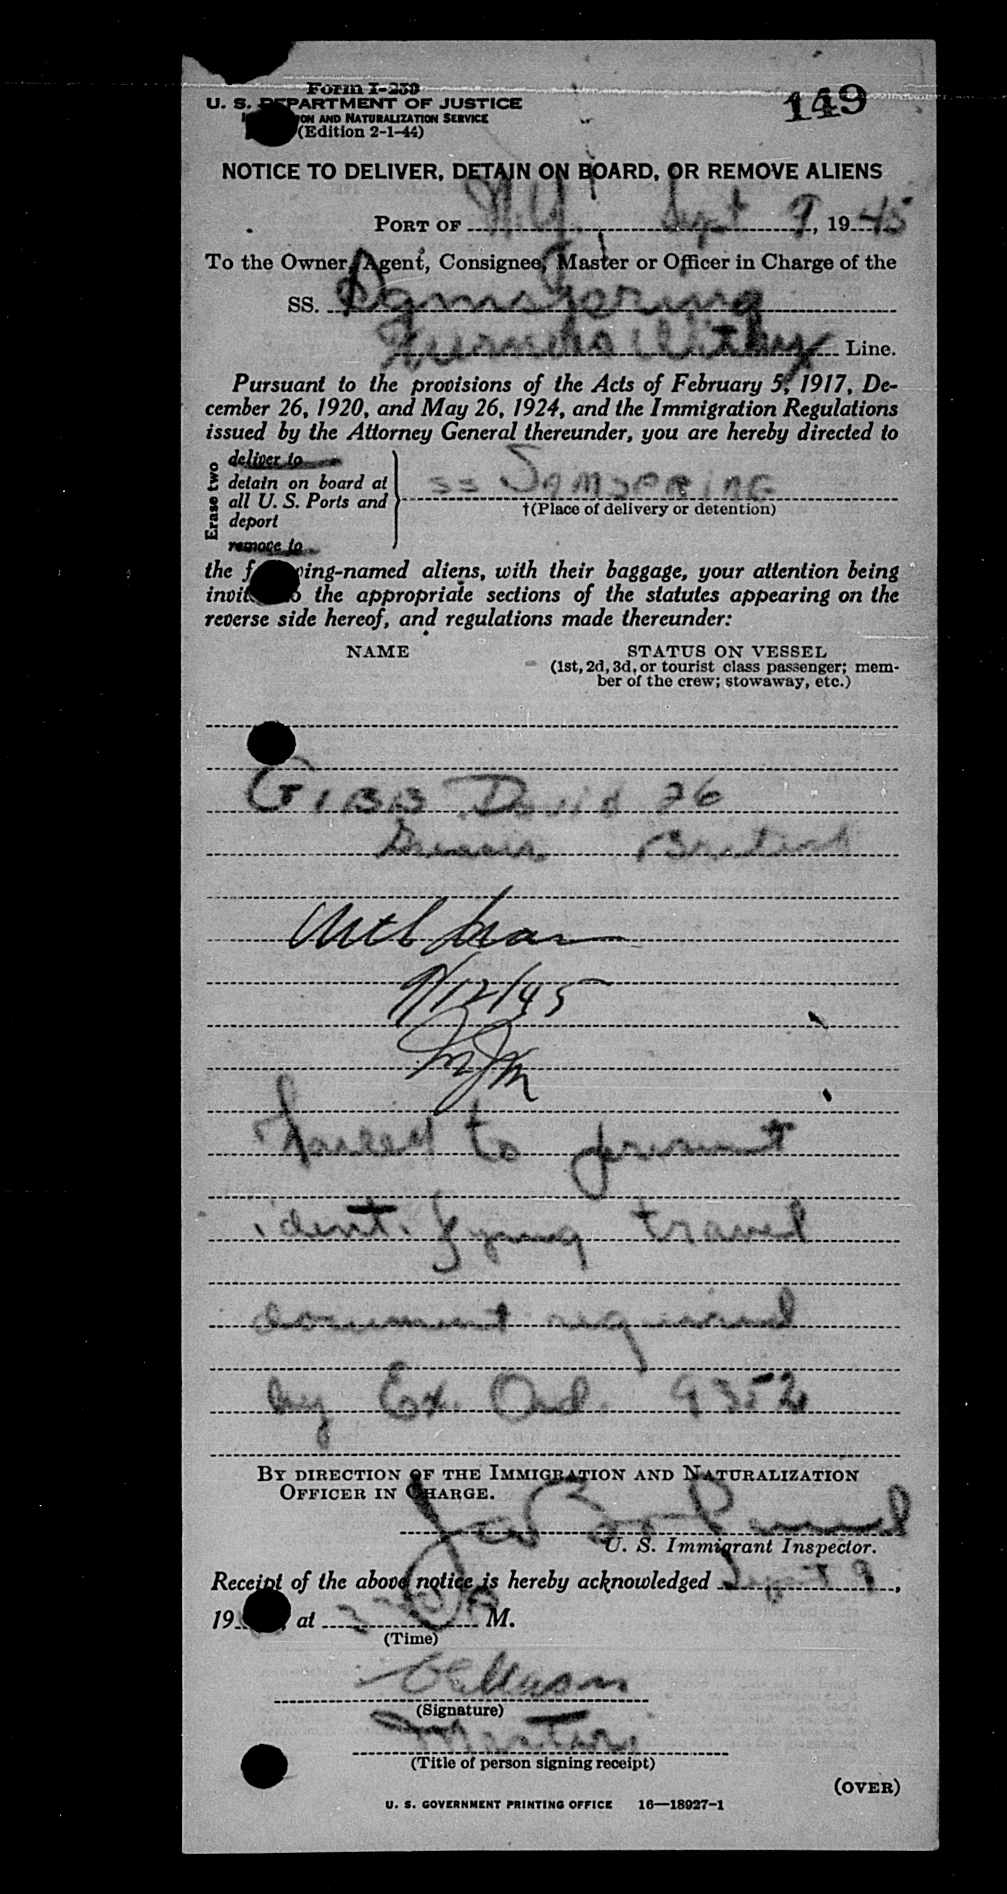 Form I-259
149
U. S. DEPARTMENT OF JUSTICE
AND NATURALIZATION SERVICE
(Edition 2-1-44)
NOTICE TO DELIVER, DETAIN ON BOARD, OR REMOVE ALIENS
PORT OF N.Y. Sept 9, 1945
To the Owner, Agent, Consignee, Master or Officer in Charge of the
SS. Samspring
Furness Withy Line.
Pursuant to the provisions of the Acts of February 5, 1917, De-
cember 26, 1920, and May 26, 1924, and the Immigration Regulations
issued by the Attorney General thereunder, you are hereby directed to
Erase two
deliver to
detain on board at
all U. S. Ports and
deport
remove to
SS SAMSPRING
†(Place of delivery or detention)
the following-named aliens, with their baggage, your attention being
invited to the appropriate sections of the statutes appearing on the
reverse side hereof, and regulations made thereunder:
NAME STATUS ON VESSEL
(1st, 2d, 3d, or tourist class passenger; mem-
ber of the crew; stowaway, etc.)
GIBB David 26
British
9/12/45
Failed to present
identifying travel
document required
by Ex. Ord. 9352
BY DIRECTION OF THE IMMIGRATION AND NATURALIZATION
OFFICER IN CHARGE.
U. S. Immigrant Inspector.
Receipt of the above notice is hereby acknowledged Sept 9,
19 at M.
(Time)
Mason
(Signature)
Master
(Title of person signing receipt)
(OVER)
U. S. GOVERNMENT PRINTING OFFICE 16—18927-1